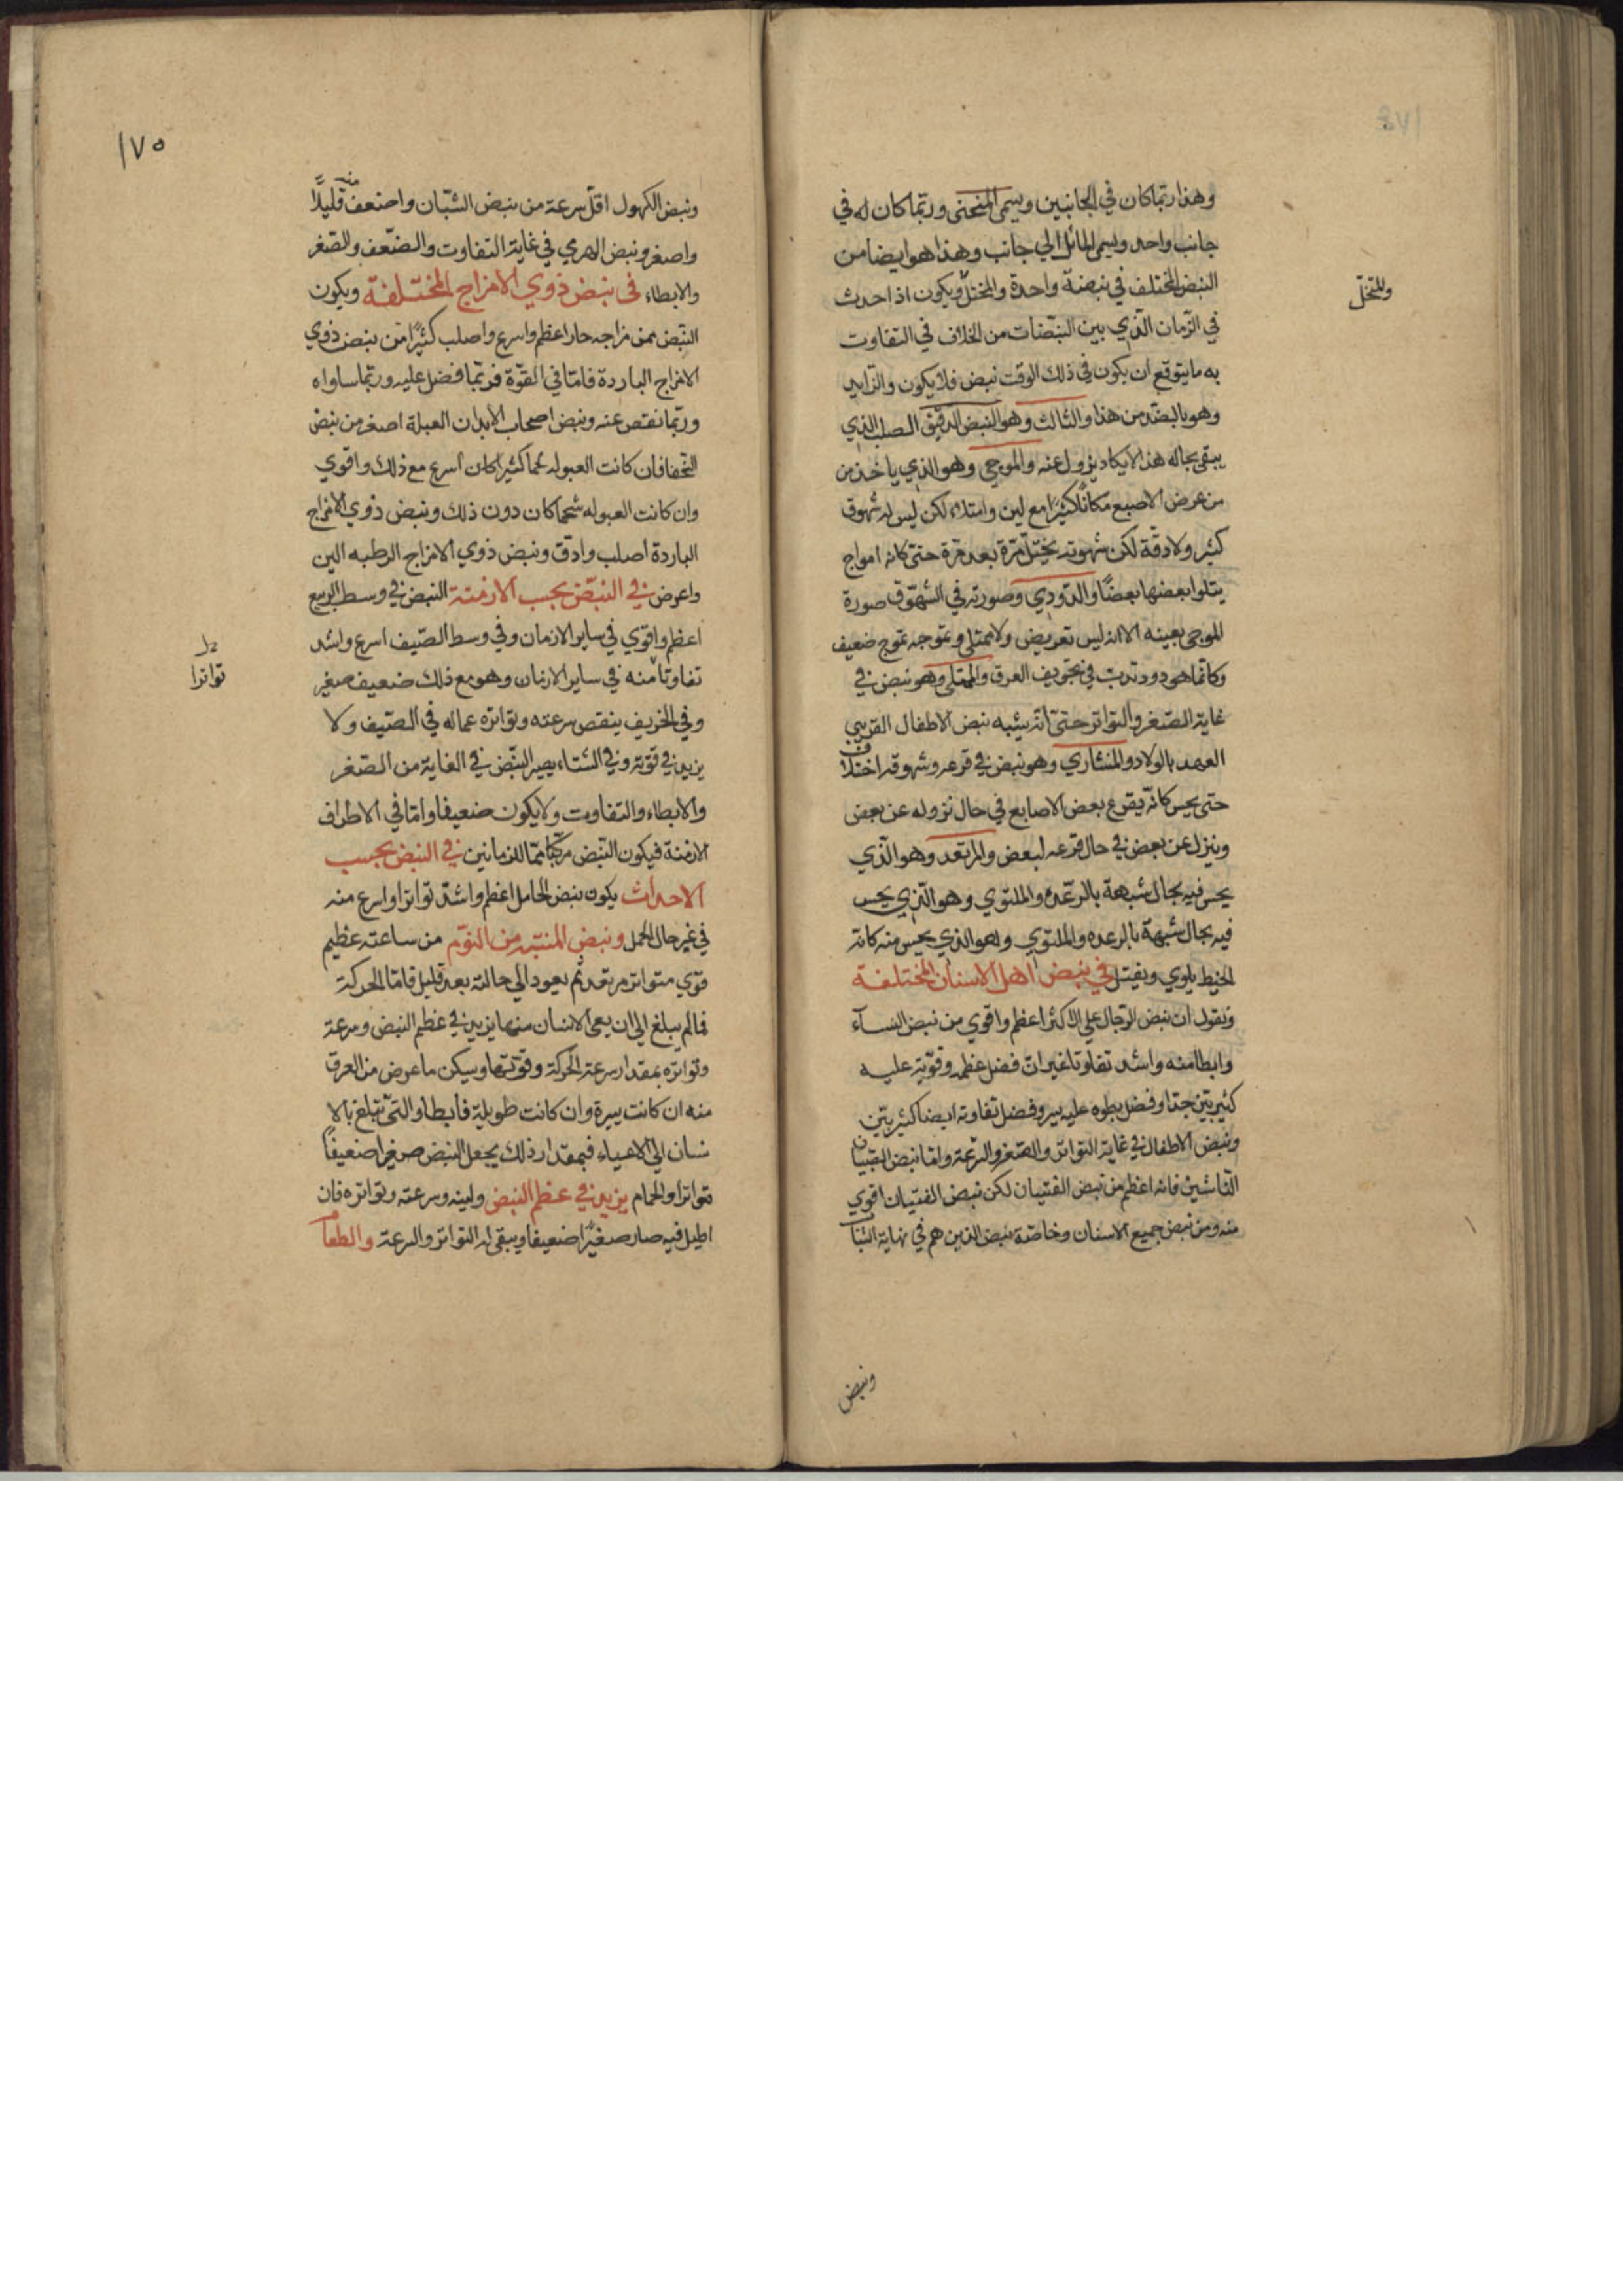 وهذا ربّما كان في الجانبين ويسمى المنحنى وربّما كان له في
جانب واحد ويسمى المائل الي جانب وهذا هو ايضا من
النبض المختلف في نبضة واحدة والمختل ويكون اذا حدث
والمتخلّل
في الزمان الّذي بين النبضات من الخلاف في التفاوت
به ما يتوقع ان يكون في ذلك الوقت نبض فلا يكون والزايد
وهو بالضدّ من هذا والثالث وهو النبض الدقيق الصلب الذي
يبقى بحاله هذا لا يكاد يزول عنه والموجي وهو الذي ياخذ من
من عرض الاصبع مكانا كثيرا مع لين وامتلاء لكن ليس له شهوق
كثير ولا دقة لكن شهوته يختل مرّة بعد مرّة حتى كانه امواج
يتلوا بعضها بعضًا والدّودي وصورته في الشهوق صورة
الموجى بعينه الا انه ليس تعريض ولا ممتلى وتموجه تموج ضعيف
وكانّما هو دود تدبّ في تجويف العرق والممتلى وهو نبض في
غاية الصغر والتواتر حتى انّه يشبه نبض الاطفال القريبي
العهد بالولاد والمنشاري وهو نبض في قرعه وشهوقه اختلاف
حتى يحس كانّه يقرع بعض الاصابع في حال نزوله عن بعض
وينزل عن بعض في حال قرعه لبعض والمرتعد وهو الّذي
يحس فيه بحال شبيهة بالرعدة والملتوي وهو الّذي يحس
فيه بحال شبيهة بالرعده والملتوي وهو الذي يحس منه كانه
الخيط يلوي ويفتل في نبض اهل الاسنان المختلفة
ونقول ان نبض الرّجال علي الاكثر اعظم واقوي من نبض النسآء
وابطا منه واشد تفاوتا غير انّ فضل عظمه وقوّته عليه
كثير بيّن جدا وفضل بطوه عليه يسير وفضل تفاوته ايضا كثير بيّن
ونبض الاطفال في غاية التواتر والصّغر والسّرعة وامّا نبض الصبيان
النّاشين فانه اعظم من نبض الفتيان لكن نبض الفتيان اقوي
منه ومن نبض جميع الاسنان وخاصّة نبض الذين هم في نهاية الشباب
ونبض
١٧٥
ونبض الكهول اقلّ سرعة من نبض الشبّان واضعف منه قليلًا
واصغر ونبض الهرمي في غاية التفاوت والضّعف والصّغر
والابطاء في نبض ذوي الامزاج المختلفة ويكون
النّبض ممن مزاجه حار اعظم واسرع واصلب كثيرًا من نبض ذوي
الامزاج الباردة فامّا في القوّة فربّما فضل عليه وربّما ساواه
وربّما نقص عنه ونبض اصحاب الابدان العبلة اصغر من نبض
النّحفا فان كانت العبوله لحما كثيرا كان اسرع مع ذلك واقوي
وان كانت العبوله شحما كان دون ذلك ونبض ذوي الامزاج
الباردة اصلب وادّق ونبض ذوي الامزاج الرطبه الين
واعرض في النبّض بحسب الازمنة النبض في وسط الربيع
اعظم واقوي في ساير الازمان وفي وسط الصّيف اسرع واشد
تفاوتا منه في ساير الازمان وهو مع ذلك ضعيف صغير
تواترا
وفي الخريف ينقص سرعته وتواتره عما له في الصّيف ولا
يزيد في قوّته وفي الشتاء يصير النّبض في الغاية من الصّغر
والابطاء والتفاوت ولا يكون ضعيفا وامّا في الاطراف
الازمنة فيكون النّبض مركّبا ممّا للزمانين في النبض بحسب
الاحداث يكون نبض الحامل اعظم واشدّ تواترا واسرع منه
في غير حال الحمل ونبض المنتبه من النّوم من ساعته عظيم
قوّي متواتر مرتعد ثم يعود الي حالته بعد قليل فامّا الحركة
فما لم يبلغ الي ان يعى الانسان منها يزيد في عظم النبض وسرعة
وتواتره بمقدار سرعة الحركة وقوّتها ويسكن ما عرض من العرق
منه ان كانت يسيرة وان كانت طويلة فابطا والتى تبلغ بالا
نسان الى الاعياء فبمقدار ذلك يجعل النبض صغيرا ضعيفًا
متواترا والحمام يزيد في عظم النبض ولينه وسرعته وتواتره فان
اطيل فيه صار صغيرًا ضعيفا ويبقى له التواتر والسرعة والطعام